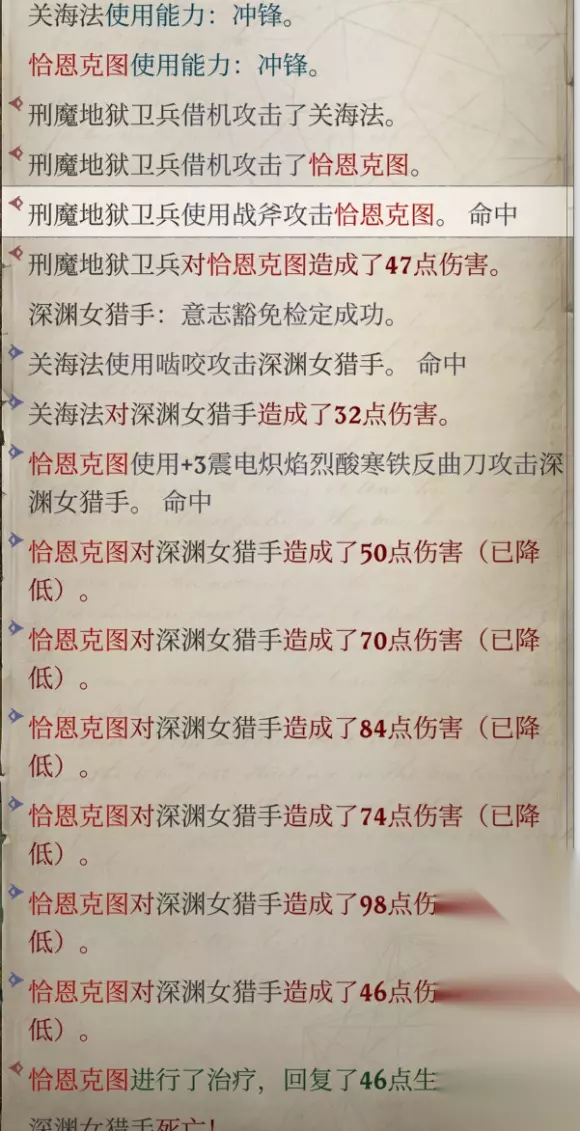 关海法使用能力：冲锋。
恰恩克图使用能力：冲锋。
刑魔地狱卫兵借机攻击了关海法。
刑魔地狱卫兵借机攻击了恰恩克图。
刑魔地狱卫兵使用战斧攻击恰恩克图。 命中
刑魔地狱卫兵对恰恩克图造成了47点伤害。
深渊女猎手：意志豁免检定成功。
关海法使用啮咬攻击深渊女猎手。 命中
关海法对深渊女猎手造成了32点伤害。
恰恩克图使用+3震电炽焰烈酸寒铁反曲刀攻击深
渊女猎手。 命中
恰恩克图对深渊女猎手造成了50点伤害（已降
低）。
恰恩克图对深渊女猎手造成了70点伤害（已降
低）。
恰恩克图对深渊女猎手造成了84点伤害（已降
低）。
恰恩克图对深渊女猎手造成了74点伤害（已降
低）。
恰恩克图对深渊女猎手造成了98点伤
低）。
恰恩克图对深渊女猎手造成了46点伤
低）。
恰恩克图进行了治疗，回复了46点生
深渊女猎手死亡！